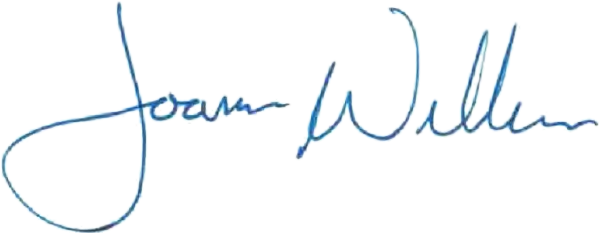 Joann Willen